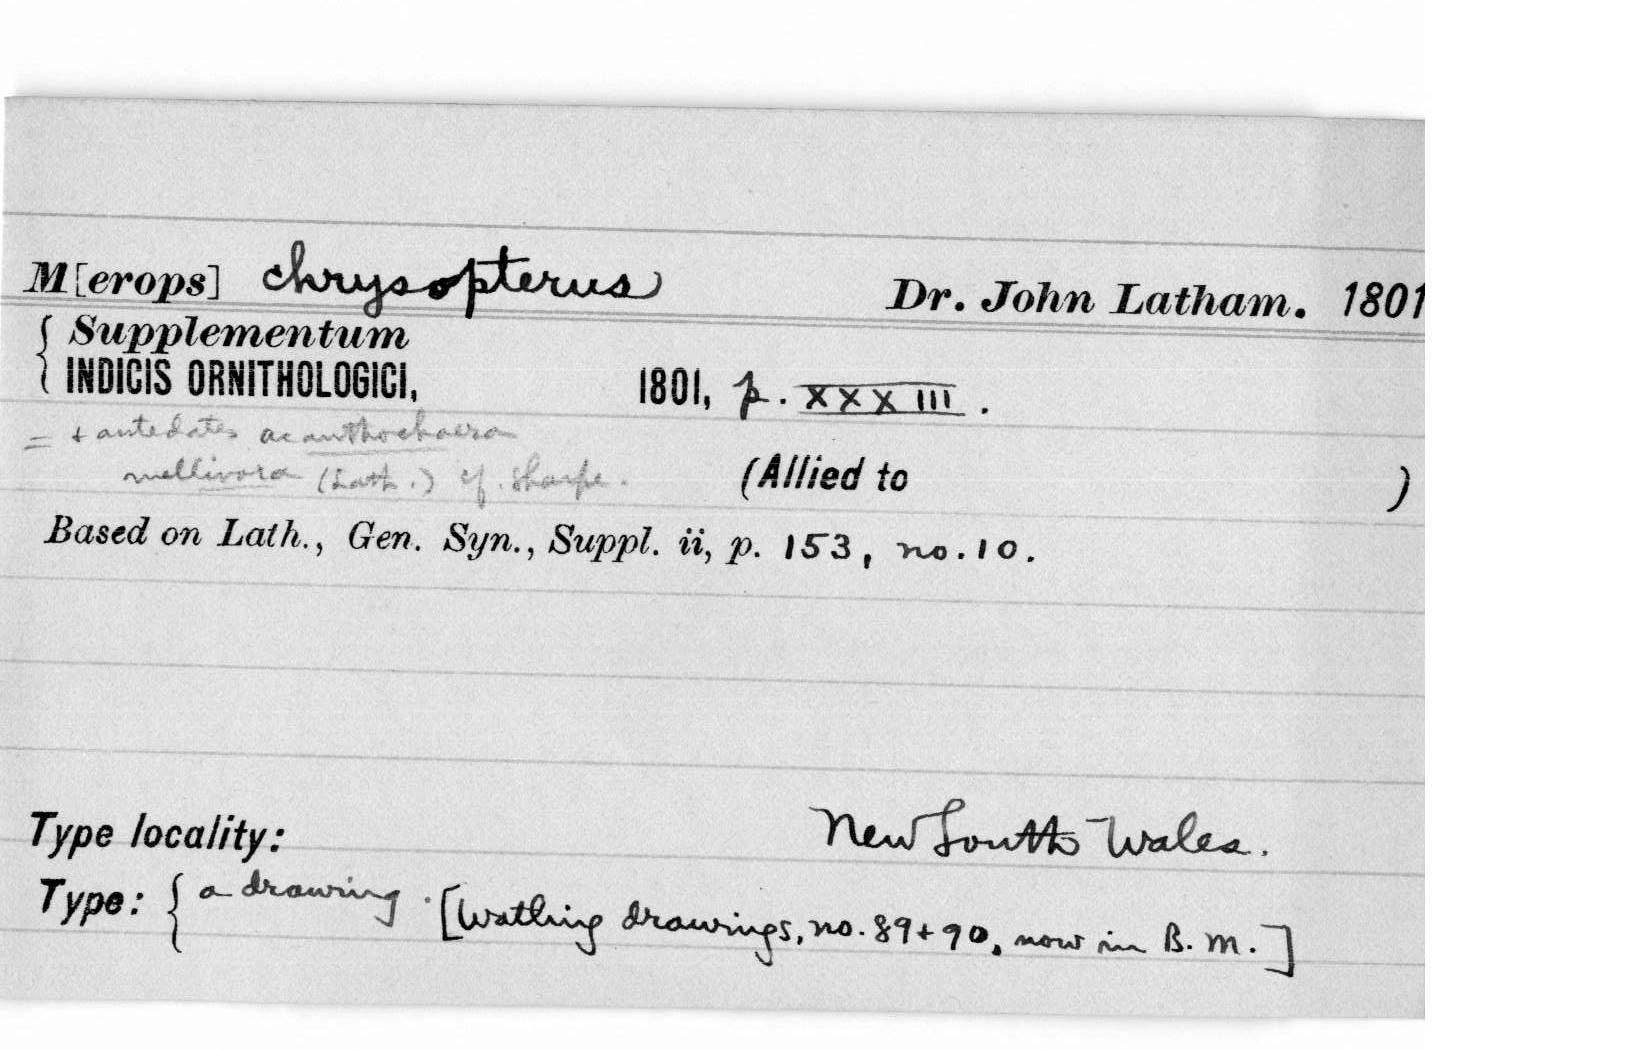 M[erops] chrysopterus Dr. John Latham. 1801
Supplementum
INDICIS ORNITHOLOGICI, 1801, p. XXXIII.
= + antedates acanthochaera
mellivora (Lath.) cf. Sharpe. (Allied to )
Based on Lath., Gen. Syn., Suppl. ii, p. 153, no. 10.
Type locality: New South Wales.
Type: { a drawing. [Watling drawings, no. 89 + 90, now in B. M.]